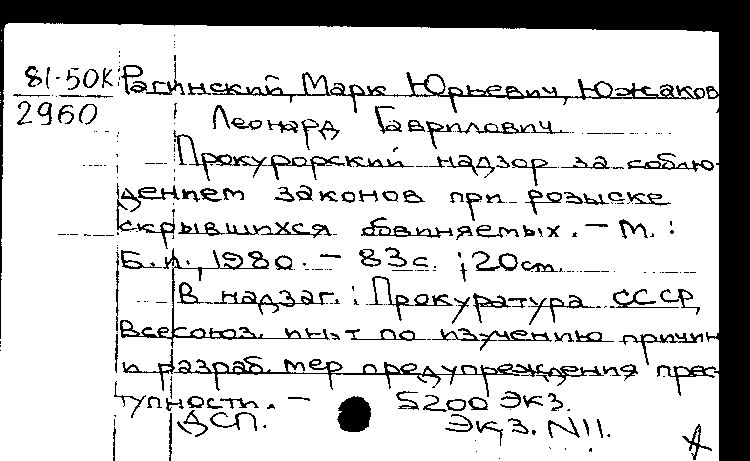 81-50К Рагинский, Марк Юрьевич, Южаков,
2960 Леонард Гаврилович.
Прокурорский надзор за соблю-
дением законов при розыске
скрывшихся обвиняемых. – М. :
Б.и., 1980. – 83с. ; 20см.
В надзаг. : Прокуратура СССР,
Всесоюз. ин-т по изучению причин
и разраб. мер предупреждения прес-
тупности. – 5200 экз.
ДСП. Экз. N11.